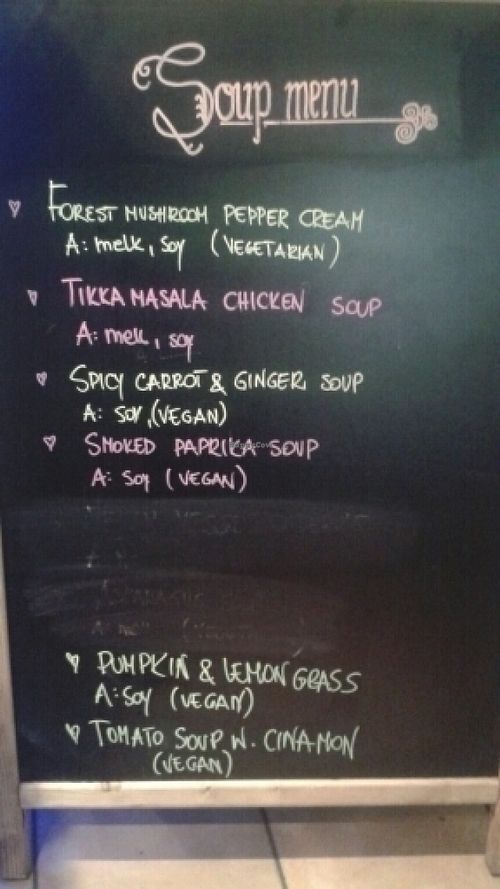 Soup menu
♡ FOREST MUSHROOM PEPPER CREAM
A: melk, soy (VEGETARIAN)
♡ TIKKA MASALA CHICKEN SOUP
A: melk, soy
♡ SPICY CARROT & GINGER SOUP
A: soy, (VEGAN)
♡ SMOKED PAPRIKA SOUP
A: soy (VEGAN)
♡ PUMPKIN & LEMON GRASS
A: soy (VEGAN)
♡ TOMATO SOUP W. CINAMON
(VEGAN)